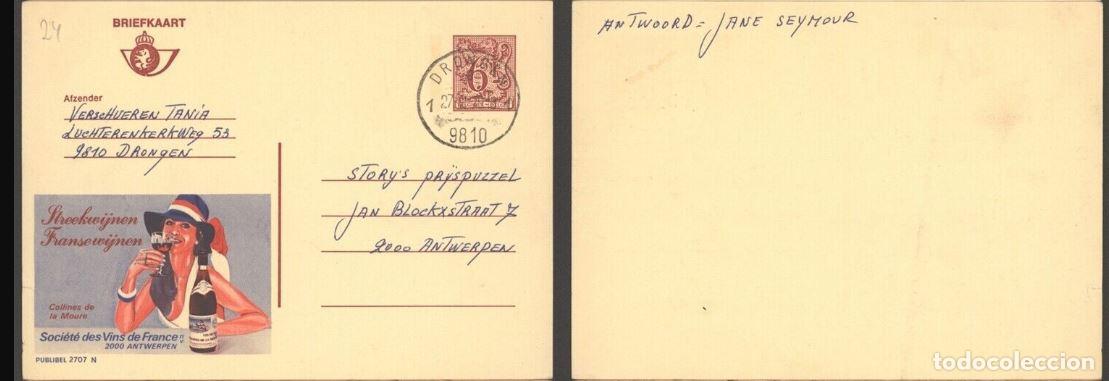 24
BRIEFKAART
Afzender
VERSCHUEREN TANIA
LUCHTERENKERKWEG 53
9810 DRONGEN
6
DRONGEN
1
27
9810
STORY'S PRIJSPUZZEL
JAN BLOCKXSTRAAT 7
2000 ANTWERPEN
Streekwijnen
Franse wijnen
Collines de
la Moure
Société des Vins de France
2000 ANTWERPEN
PUBLIBEL 2707 N
ANTWOORD = JANE SEYMOUR
todocoleccion